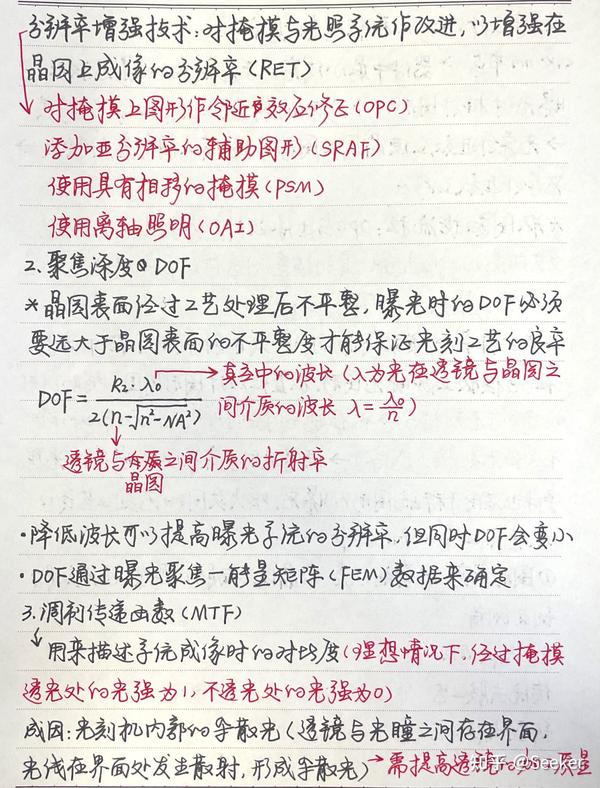 分辨率增强技术:对掩模与光照系统作改进,以增强在
晶圆上成像的分辨率(RET)
对掩模上图形作邻近效应修正(OPC)
添加亚分辨率的辅助图形(SRAF)
使用具有相移的掩模(PSM)
使用离轴照明(OAI)
2.聚焦深度 DOF
*晶圆表面经过工艺处理后不平整,曝光时的DOF必须
要远大于晶圆表面的不平整度才能保证光刻工艺的良率
DOF = k₂·λ₀ / 2(n-√(n²-NA²))
真空中的波长(λ为光在透镜与晶圆之
间介质的波长 λ=λ₀/n)
透镜与晶圆之间介质的折射率
·降低波长可以提高曝光系统的分辨率,但同时DOF会变小
·DOF通过曝光聚焦-能量矩阵(FEM)数据来确定
3.调制传递函数(MTF)
用来描述系统成像时的对比度(理想情况下,经过掩模
透光处的光强为1,不透光处的光强为0)
成因:光刻机内部的杂散光(透镜与光瞳之间存在界面,
光线在界面处发生散射,形成杂散光)→需提高透镜的 质量
知乎 @Seeker